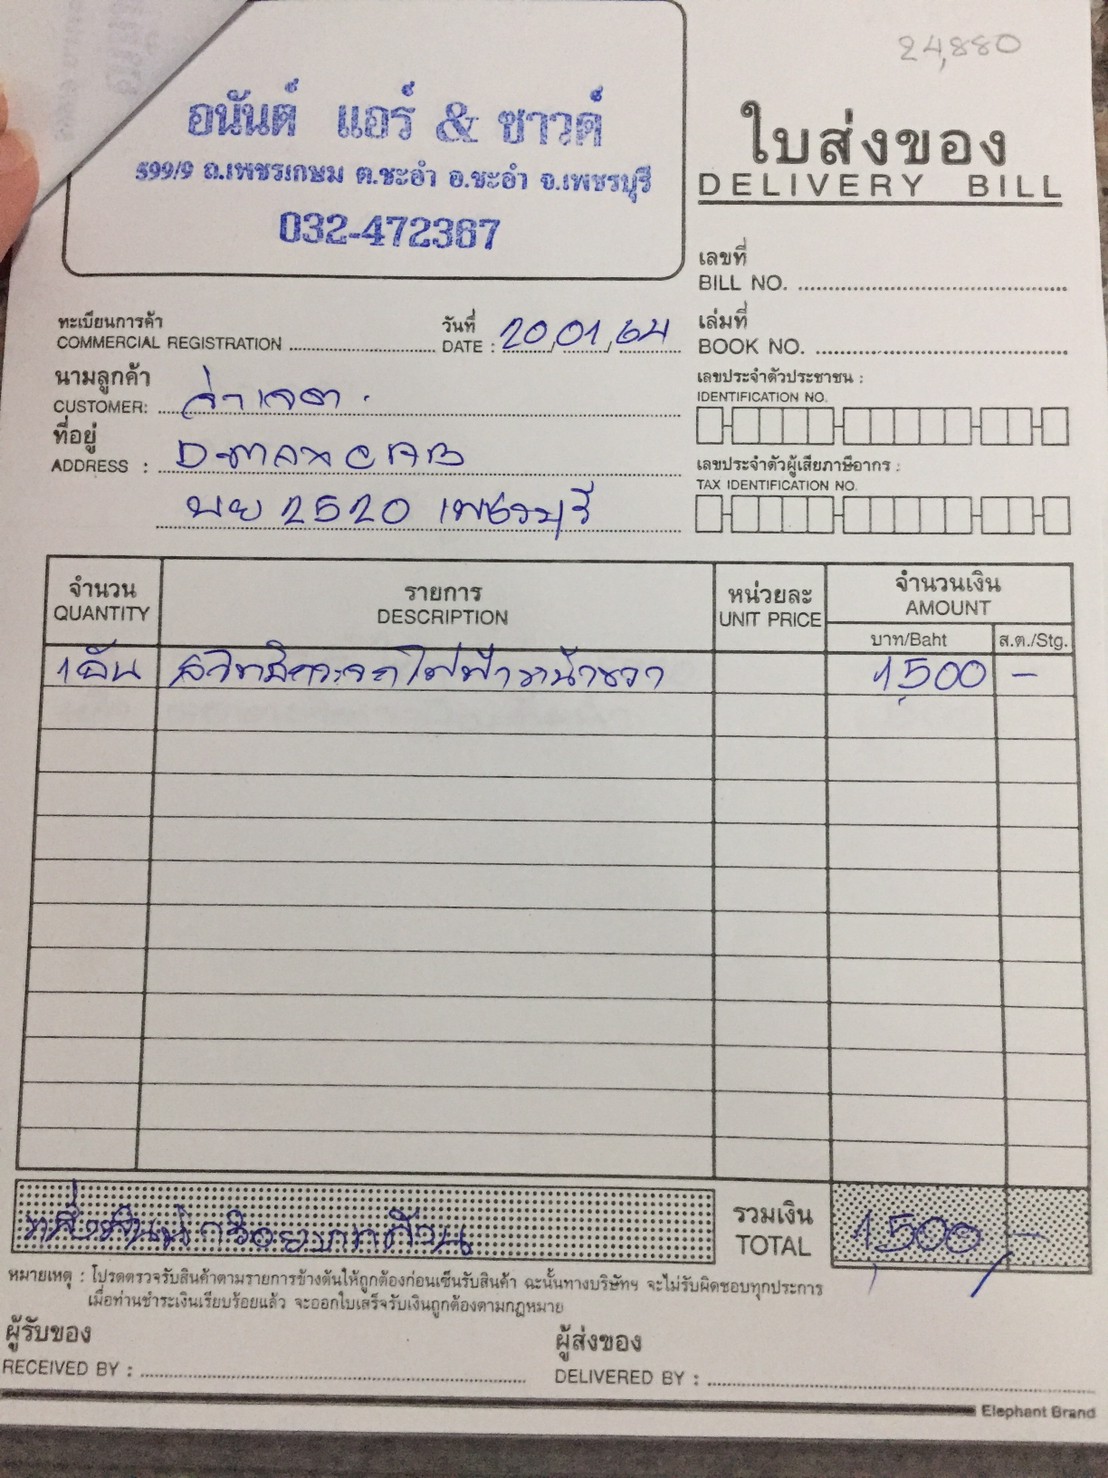 24,880
อนันต์ แอร์ & ซาวด์
599/9 ถ.เพชรเกษม ต.ชะอำ อ.ชะอำ จ.เพชรบุรี
032-472367
ใบส่งของ
DELIVERY BILL
เลขที่
BILL NO.
ทะเบียนการค้า
COMMERCIAL REGISTRATION
วันที่
DATE : 20,01,64
เล่มที่
BOOK NO.
นามลูกค้า
CUSTOMER:
ที่อยู่
ADDRESS : D-max CAB
บย 2520 เพชรบุรี
เลขประจำตัวประชาชน :
IDENTIFICATION NO.
เลขประจำตัวผู้เสียภาษีอากร :
TAX IDENTIFICATION NO.
จำนวน รายการ หน่วยละ จำนวนเงิน
QUANTITY DESCRIPTION UNIT PRICE AMOUNT
บาท/Baht ส.ต./Stg.
1 อัน สวิทช์กระจกไฟฟ้าหน้าขวา 1,500 -
รวมเงิน
TOTAL 1,500 -
หมายเหตุ : โปรดตรวจรับสินค้าตามรายการข้างต้นให้ถูกต้องก่อนเซ็นรับสินค้า ฉะนั้นทางบริษัทฯ จะไม่รับผิดชอบทุกประการ
เมื่อท่านชำระเงินเรียบร้อยแล้ว จะออกใบเสร็จรับเงินถูกต้องตามกฎหมาย
ผู้รับของ
RECEIVED BY :
ผู้ส่งของ
DELIVERED BY :
Elephant Brand